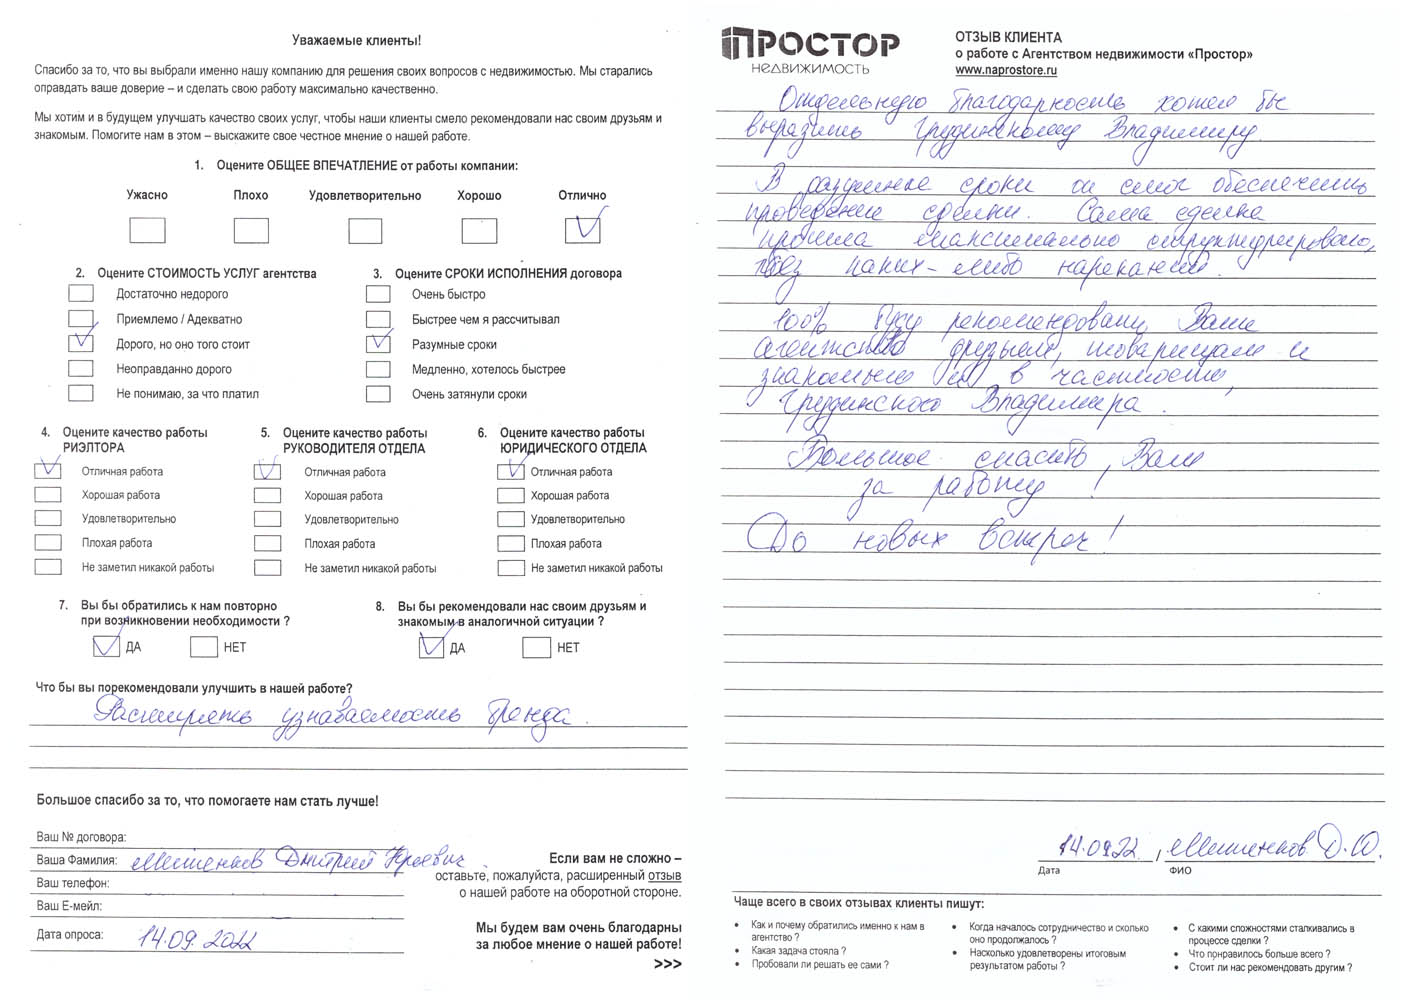 Уважаемые клиенты!
Спасибо за то, что вы выбрали именно нашу компанию для решения своих вопросов с недвижимостью. Мы старались
оправдать ваше доверие – и сделать свою работу максимально качественно.
Мы хотим и в будущем улучшать качество своих услуг, чтобы наши клиенты смело рекомендовали нас своим друзьям и
знакомым. Помогите нам в этом – выскажите свое честное мнение о нашей работе.
1. Оцените ОБЩЕЕ ВПЕЧАТЛЕНИЕ от работы компании:
Ужасно Плохо Удовлетворительно Хорошо Отлично
2. Оцените СТОИМОСТЬ УСЛУГ агентства
Достаточно недорого
Приемлемо / Адекватно
Дорого, но оно того стоит
Неоправданно дорого
Не понимаю, за что платил
3. Оцените СРОКИ ИСПОЛНЕНИЯ договора
Очень быстро
Быстрее чем я рассчитывал
Разумные сроки
Медленно, хотелось быстрее
Очень затянули сроки
4. Оцените качество работы
РИЭЛТОРА
Отличная работа
Хорошая работа
Удовлетворительно
Плохая работа
Не заметил никакой работы
5. Оцените качество работы
РУКОВОДИТЕЛЯ ОТДЕЛА
Отличная работа
Хорошая работа
Удовлетворительно
Плохая работа
Не заметил никакой работы
6. Оцените качество работы
ЮРИДИЧЕСКОГО ОТДЕЛА
Отличная работа
Хорошая работа
Удовлетворительно
Плохая работа
Не заметил никакой работы
7. Вы бы обратились к нам повторно
при возникновении необходимости ?
ДА НЕТ
8. Вы бы рекомендовали нас своим друзьям и
знакомым в аналогичной ситуации ?
ДА НЕТ
Что бы вы порекомендовали улучшить в нашей работе?
Расширять узнаваемость бренда.
Большое спасибо за то, что помогаете нам стать лучше!
Ваш № договора:
Ваша Фамилия: Мишенков Дмитрий Юрьевич.
Ваш телефон:
Ваш Е-мейл:
Дата опроса: 14.09.2022
Если вам не сложно –
оставьте, пожалуйста, расширенный отзыв
о нашей работе на оборотной стороне.
Мы будем вам очень благодарны
за любое мнение о нашей работе!
>>>
ПРОСТОР
НЕДВИЖИМОСТЬ
ОТЗЫВ КЛИЕНТА
о работе с Агентством недвижимости «Простор»
www.naprostore.ru
Отдельную благодарность хотел бы
выразить Грудинскому Владимиру.
В разумные сроки он смог обеспечить
проведение сделки. Сама сделка
прошла максимально структурировано,
без каких-либо нареканий.
100% буду рекомендовать Ваше
агентство друзьям, товарищам и
знакомым и в частности,
Грудинского Владимира.
Большое спасибо, Вам
за работу!
До новых встреч!
14.09.22, Мишенков Д.Ю.
Дата ФИО
Чаще всего в своих отзывах клиенты пишут:
• Как и почему обратились именно к нам в
агентство ?
• Какая задача стояла ?
• Пробовали ли решать ее сами ?
• Когда началось сотрудничество и сколько
оно продолжалось ?
• Насколько удовлетворены итоговым
результатом работы ?
• С какими сложностями сталкивались в
процессе сделки ?
• Что понравилось больше всего ?
• Стоит ли нас рекомендовать другим ?